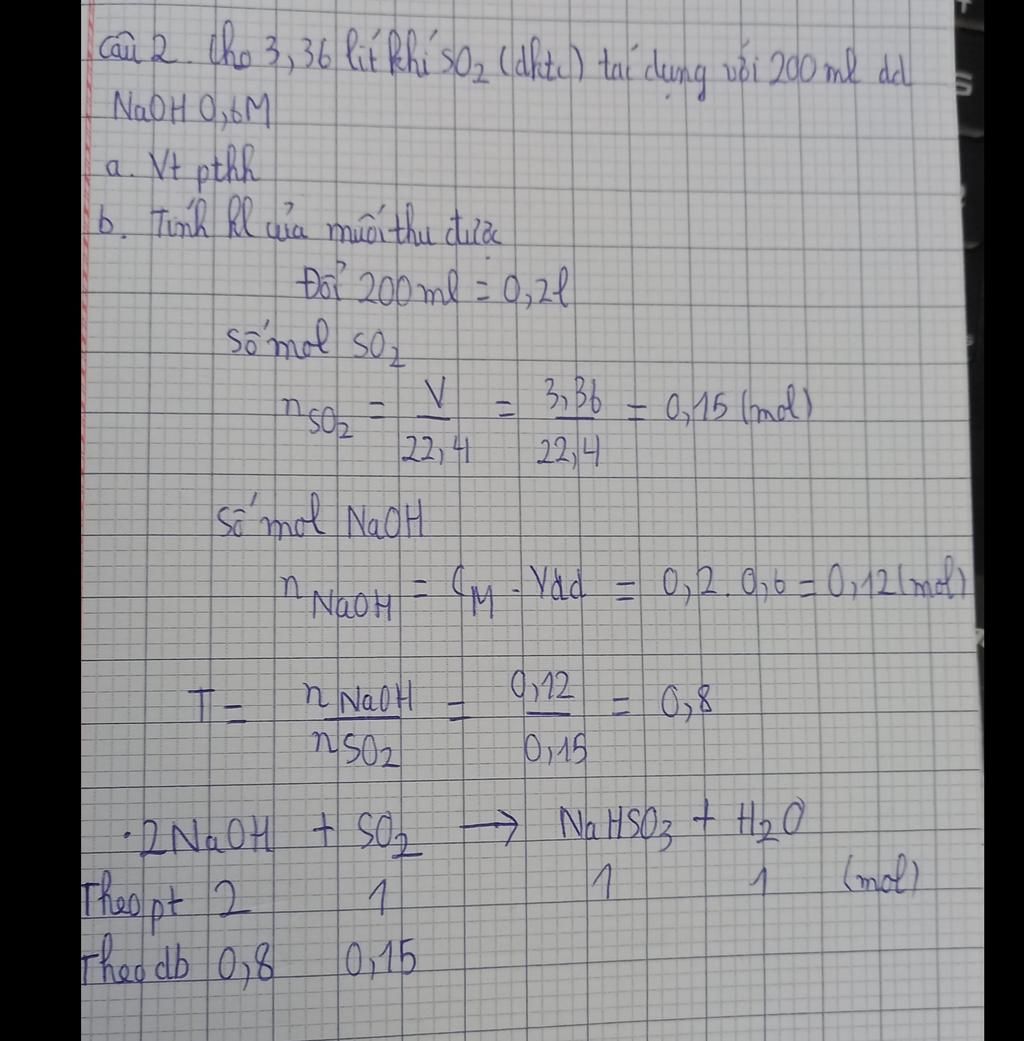 Câu 2. Cho 3,36 lít khí SO₂ (đktc) tác dụng với 200 ml dd
NaOH 0,6M
a. Vt pthh
b. Tính kl của muối thu được
Đổi 200ml = 0,2l
Số mol SO₂
n SO₂ = V/22,4 = 3,36/22,4 = 0,15 (mol)
Số mol NaOH
n NaOH = C_M . Vdd = 0,2 . 0,6 = 0,12 (mol)
T = n NaOH/n SO₂ = 0,12/0,15 = 0,8
. 2NaOH + SO₂ → NaHSO₃ + H₂O
Theo pt 2 1 1 1 (mol)
Theo db 0,8 0,15